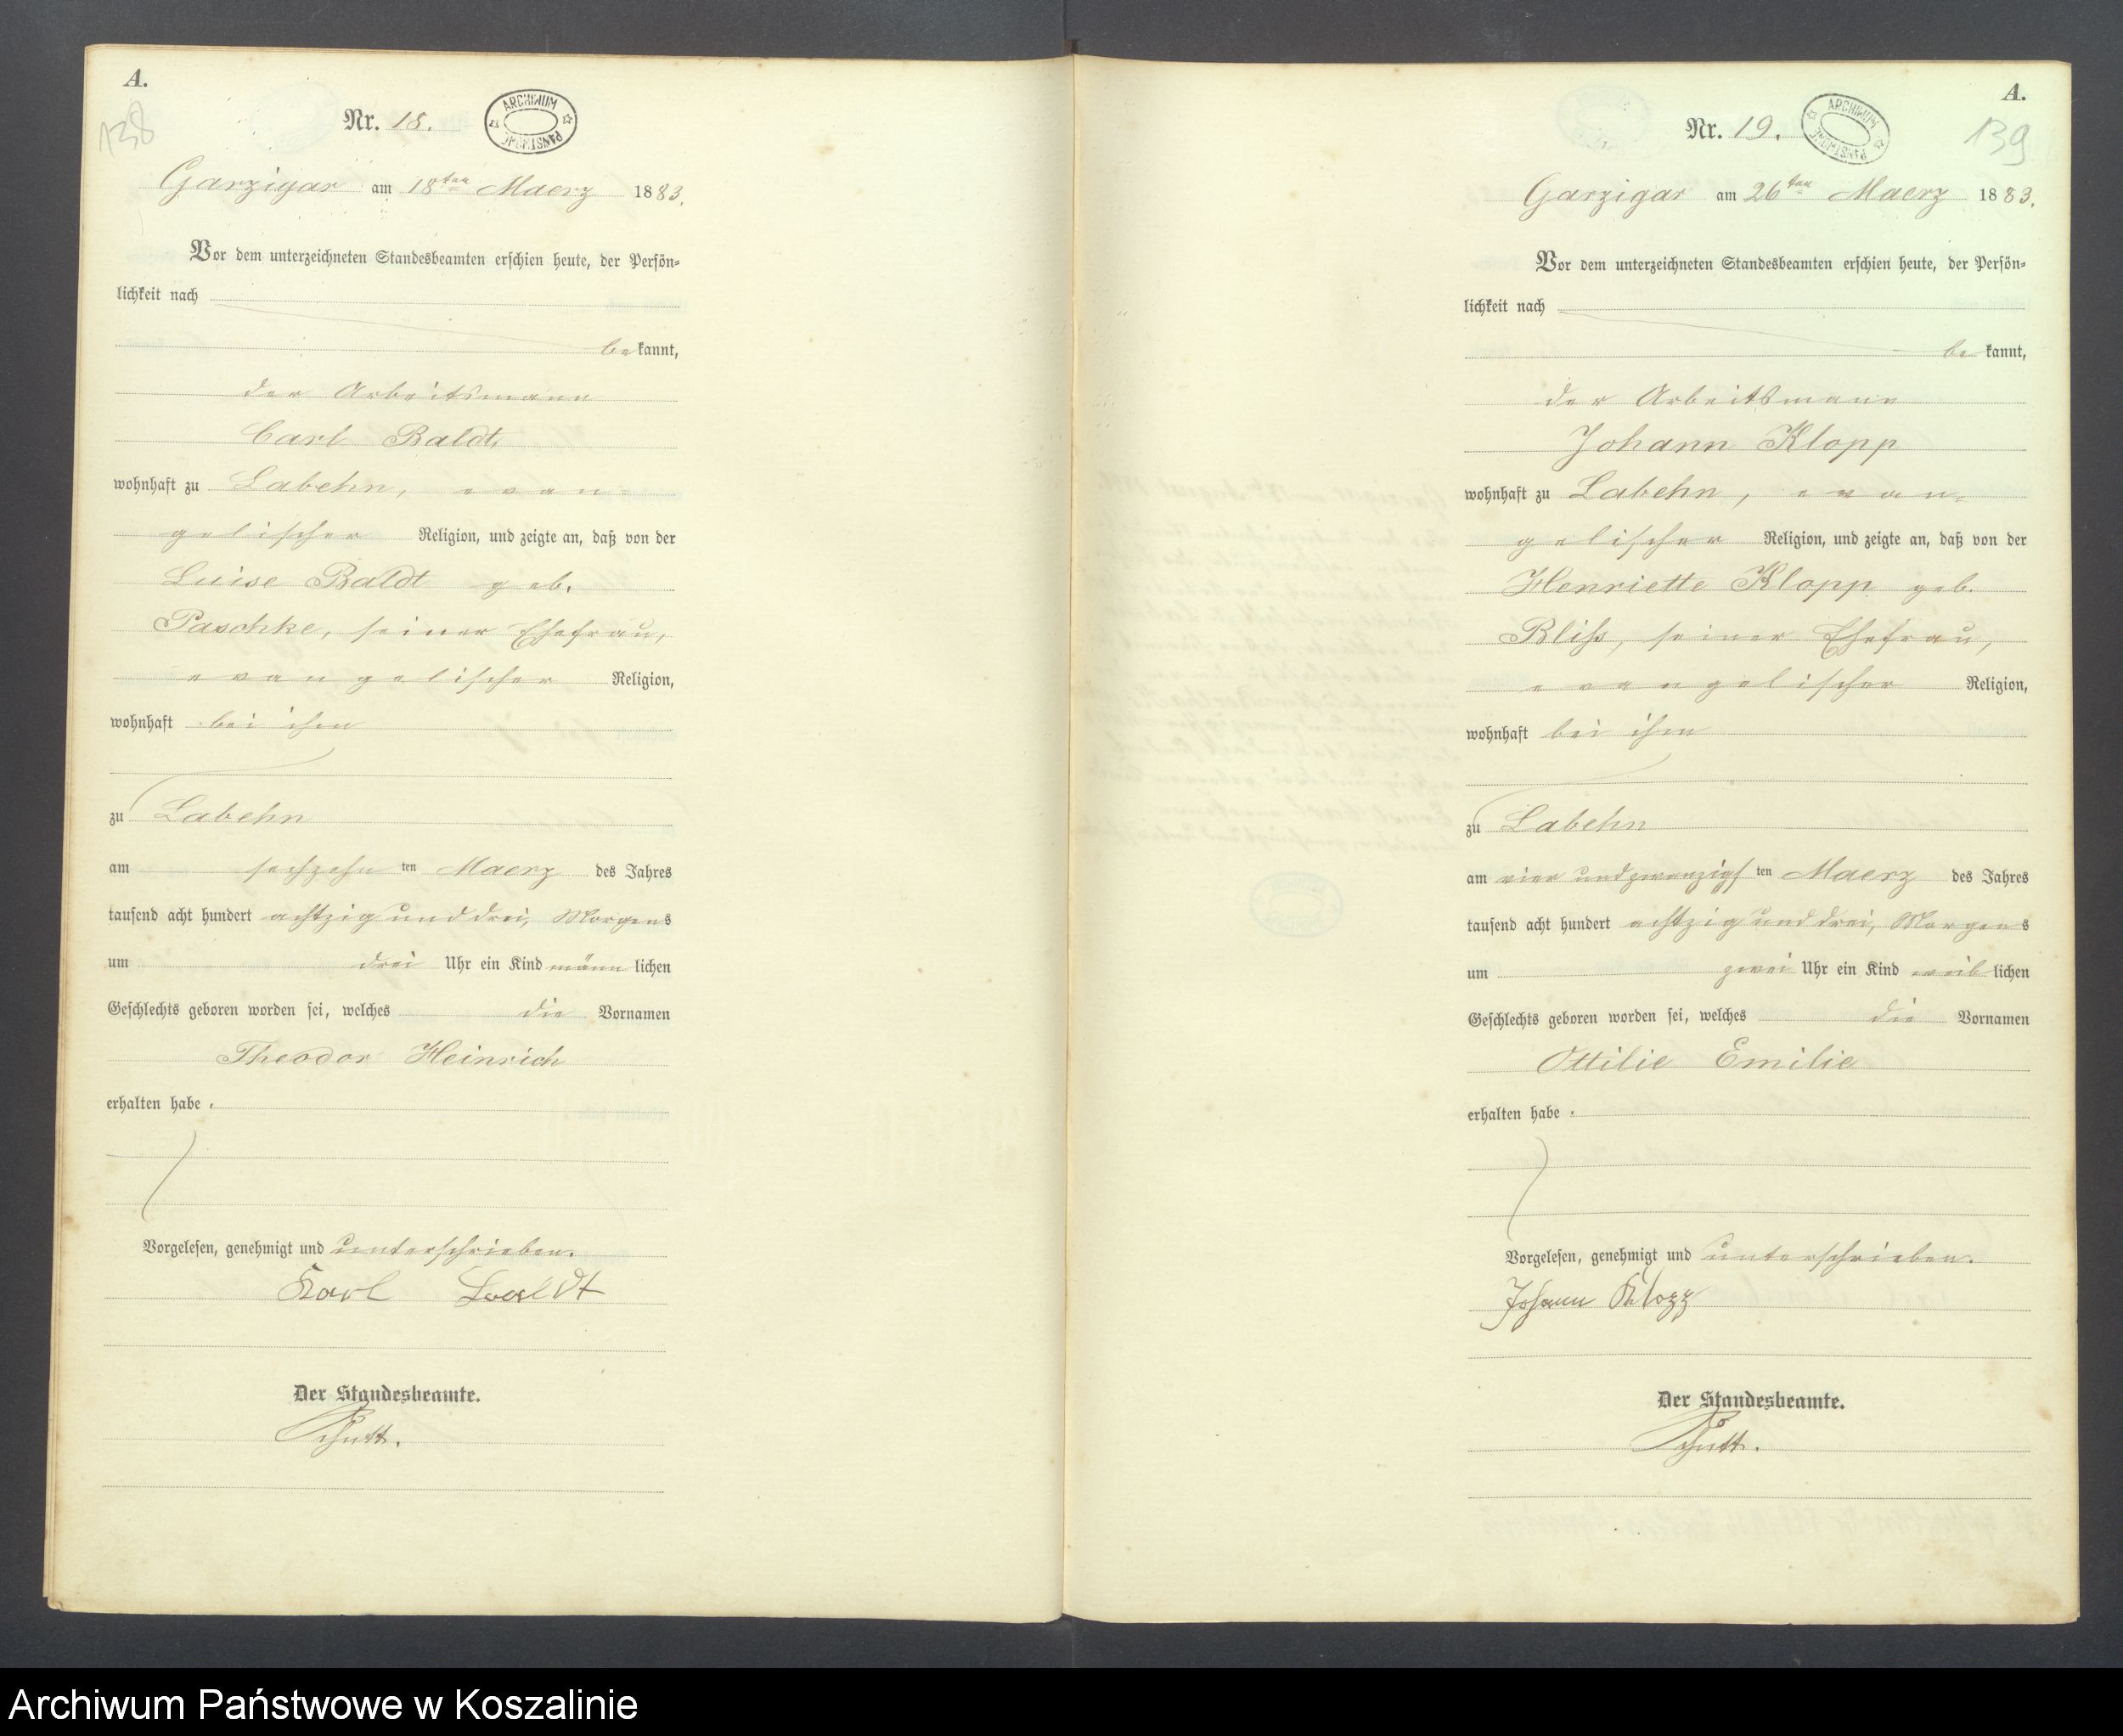 A.
138
Nr. 18.
ARCHIWUM PAŃSTWOWE
Garzigar am 18ten Maerz 1883.
Vor dem unterzeichneten Standesbeamten erschien heute, der Persön-
lichkeit nach
bekannt,
der Arbeitsmann
Carl Baldt,
wohnhaft zu Labehn, evan-
gelischer Religion, und zeigte an, daß von der
Luise Baldt geb.
Paschke, seiner Ehefrau,
evangelischer Religion,
wohnhaft bei ihm
zu Labehn
am sechzehnten Maerz des Jahres
tausend acht hundert achtzig und drei, Morgens
um drei Uhr ein Kind männlichen
Geschlechts geboren worden sei, welches die Vornamen
Theodor Heinrich
erhalten habe.
Vorgelesen, genehmigt und unterschrieben.
Karl Baldt
Der Standesbeamte.
A.
139
Nr. 19.
ARCHIWUM PAŃSTWOWE
Garzigar am 26ten Maerz 1883.
Vor dem unterzeichneten Standesbeamten erschien heute, der Persön-
lichkeit nach
bekannt,
der Arbeitsmann
Johann Klopp
wohnhaft zu Labehn, evan-
gelischer Religion, und zeigte an, daß von der
Henriette Klopp geb.
Bliß, seiner Ehefrau,
evangelischer Religion,
wohnhaft bei ihm
zu Labehn
am vier und zwanzigsten Maerz des Jahres
tausend acht hundert achtzig und drei, Morgens
um zwei Uhr ein Kind weiblichen
Geschlechts geboren worden sei, welches die Vornamen
Ottilie Emilie
erhalten habe.
Vorgelesen, genehmigt und unterschrieben.
Johann Klopp
Der Standesbeamte.
Archiwum Państwowe w Koszalinie